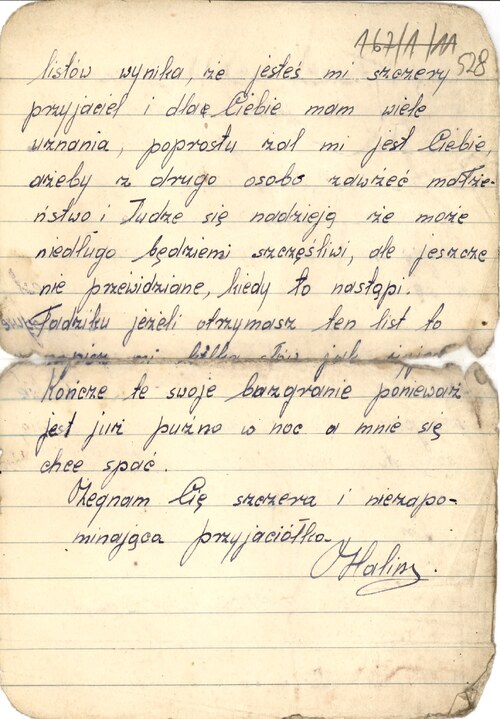 167/1/11
528
listów wynika, że jesteś mi szczery
przyjaciel i dlac Ciebie mam wiele
uznania, poprostu żal mi jest Ciebie
ażeby z drugo osobo zawżeć małże-
ństwo i łudze się nadzieją że może
niedługo będziemi szczęśliwi, ale jeszcze
nie przewidziane, kiedy to nastąpi.
Tadziku jeżeli otrzymasz ten list to
napisz mi kilka słów jak
Kończe te swoje bazgranie ponieważ
jest już puźno w noc a mnie się
chce spać.
Żegnam Cię szczera i niezapo-
minająca przyjaciółka
Halina.